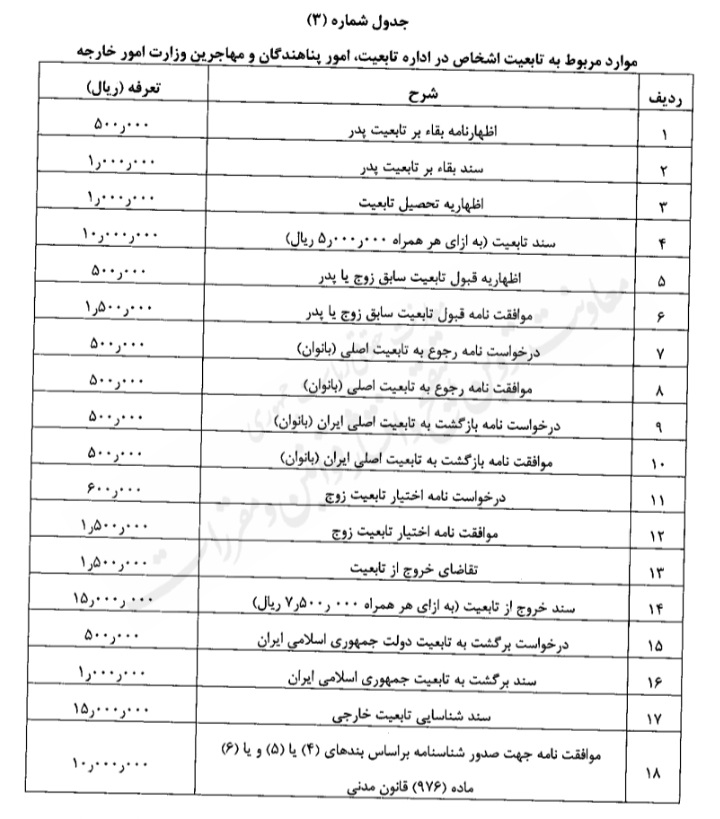 جدول شماره (۳)
موارد مربوط به تابعیت اشخاص در اداره تابعیت، امور پناهندگان و مهاجرین وزارت امور خارجه
ردیف شرح تعرفه (ریال)
۱ اظهارنامه بقاء بر تابعیت پدر ۵۰۰٫۰۰۰
۲ سند بقاء بر تابعیت پدر ۱٫۰۰۰٫۰۰۰
۳ اظهاریه تحصیل تابعیت ۱٫۰۰۰٫۰۰۰
۴ سند تابعیت (به ازای هر همراه ۵٫۰۰۰٫۰۰۰ ریال) ۱۰٫۰۰۰٫۰۰۰
۵ اظهاریه قبول تابعیت سابق زوج یا پدر ۵۰۰٫۰۰۰
۶ موافقت نامه قبول تابعیت سابق زوج یا پدر ۱٫۵۰۰٫۰۰۰
۷ درخواست نامه رجوع به تابعیت اصلی (بانوان) ۵۰۰٫۰۰۰
۸ موافقت نامه رجوع به تابعیت اصلی (بانوان) ۵۰۰٫۰۰۰
۹ درخواست نامه بازگشت به تابعیت اصلی ایران (بانوان) ۵۰۰٫۰۰۰
۱۰ موافقت نامه بازگشت به تابعیت اصلی ایران (بانوان) ۵۰۰٫۰۰۰
۱۱ درخواست نامه اختیار تابعیت زوج ۶۰۰٫۰۰۰
۱۲ موافقت نامه اختیار تابعیت زوج ۱٫۵۰۰٫۰۰۰
۱۳ تقاضای خروج از تابعیت ۱٫۵۰۰٫۰۰۰
۱۴ سند خروج از تابعیت (به ازای هر همراه ۷٫۵۰۰٫۰۰۰ ریال) ۱۵٫۰۰۰٫۰۰۰
۱۵ درخواست برگشت به تابعیت دولت جمهوری اسلامی ایران ۵۰۰٫۰۰۰
۱۶ سند برگشت به تابعیت جمهوری اسلامی ایران ۱٫۰۰۰٫۰۰۰
۱۷ سند شناسایی تابعیت خارجی ۱۵٫۰۰۰٫۰۰۰
۱۸ موافقت نامه جهت صدور شناسنامه براساس بندهای (۴) یا (۵) و یا (۶)
ماده (۹۷۶) قانون مدنی ۱۰٫۰۰۰٫۰۰۰